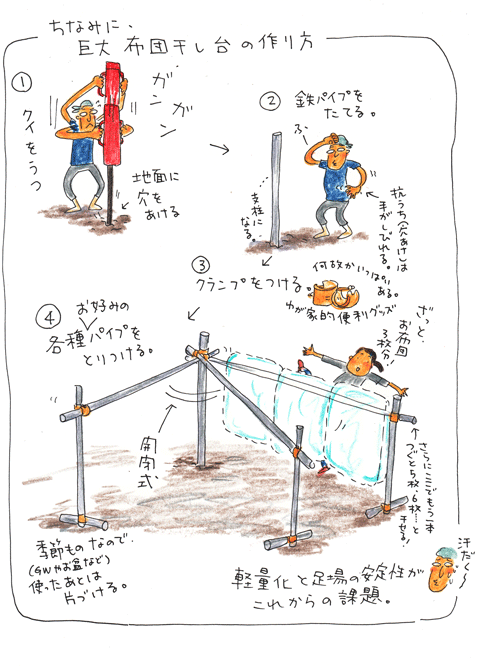 ちなみに、
巨大 布団干し台の作り方
①
クイをうつ
ガンガン
地面に
穴を
あける
②
鉄パイプを
たてる。
ふー
支柱に
なる。
杭うち(穴あけ)は
手がしびれる。
③
クランプをつける。
何故かいっぱい
ある。
わが家的便利グッズ
④
お好みの
各種パイプを
とりつける。
ざっと、
お布団
3枚分!
開閉式
さらにここでもう一本
つぐと5枚・6枚…と
干せる!
季節ものなので、
(GWやお盆など)
使ったあとは
片づける。
軽量化と足場の安定性が
これからの課題。
汗だく〜